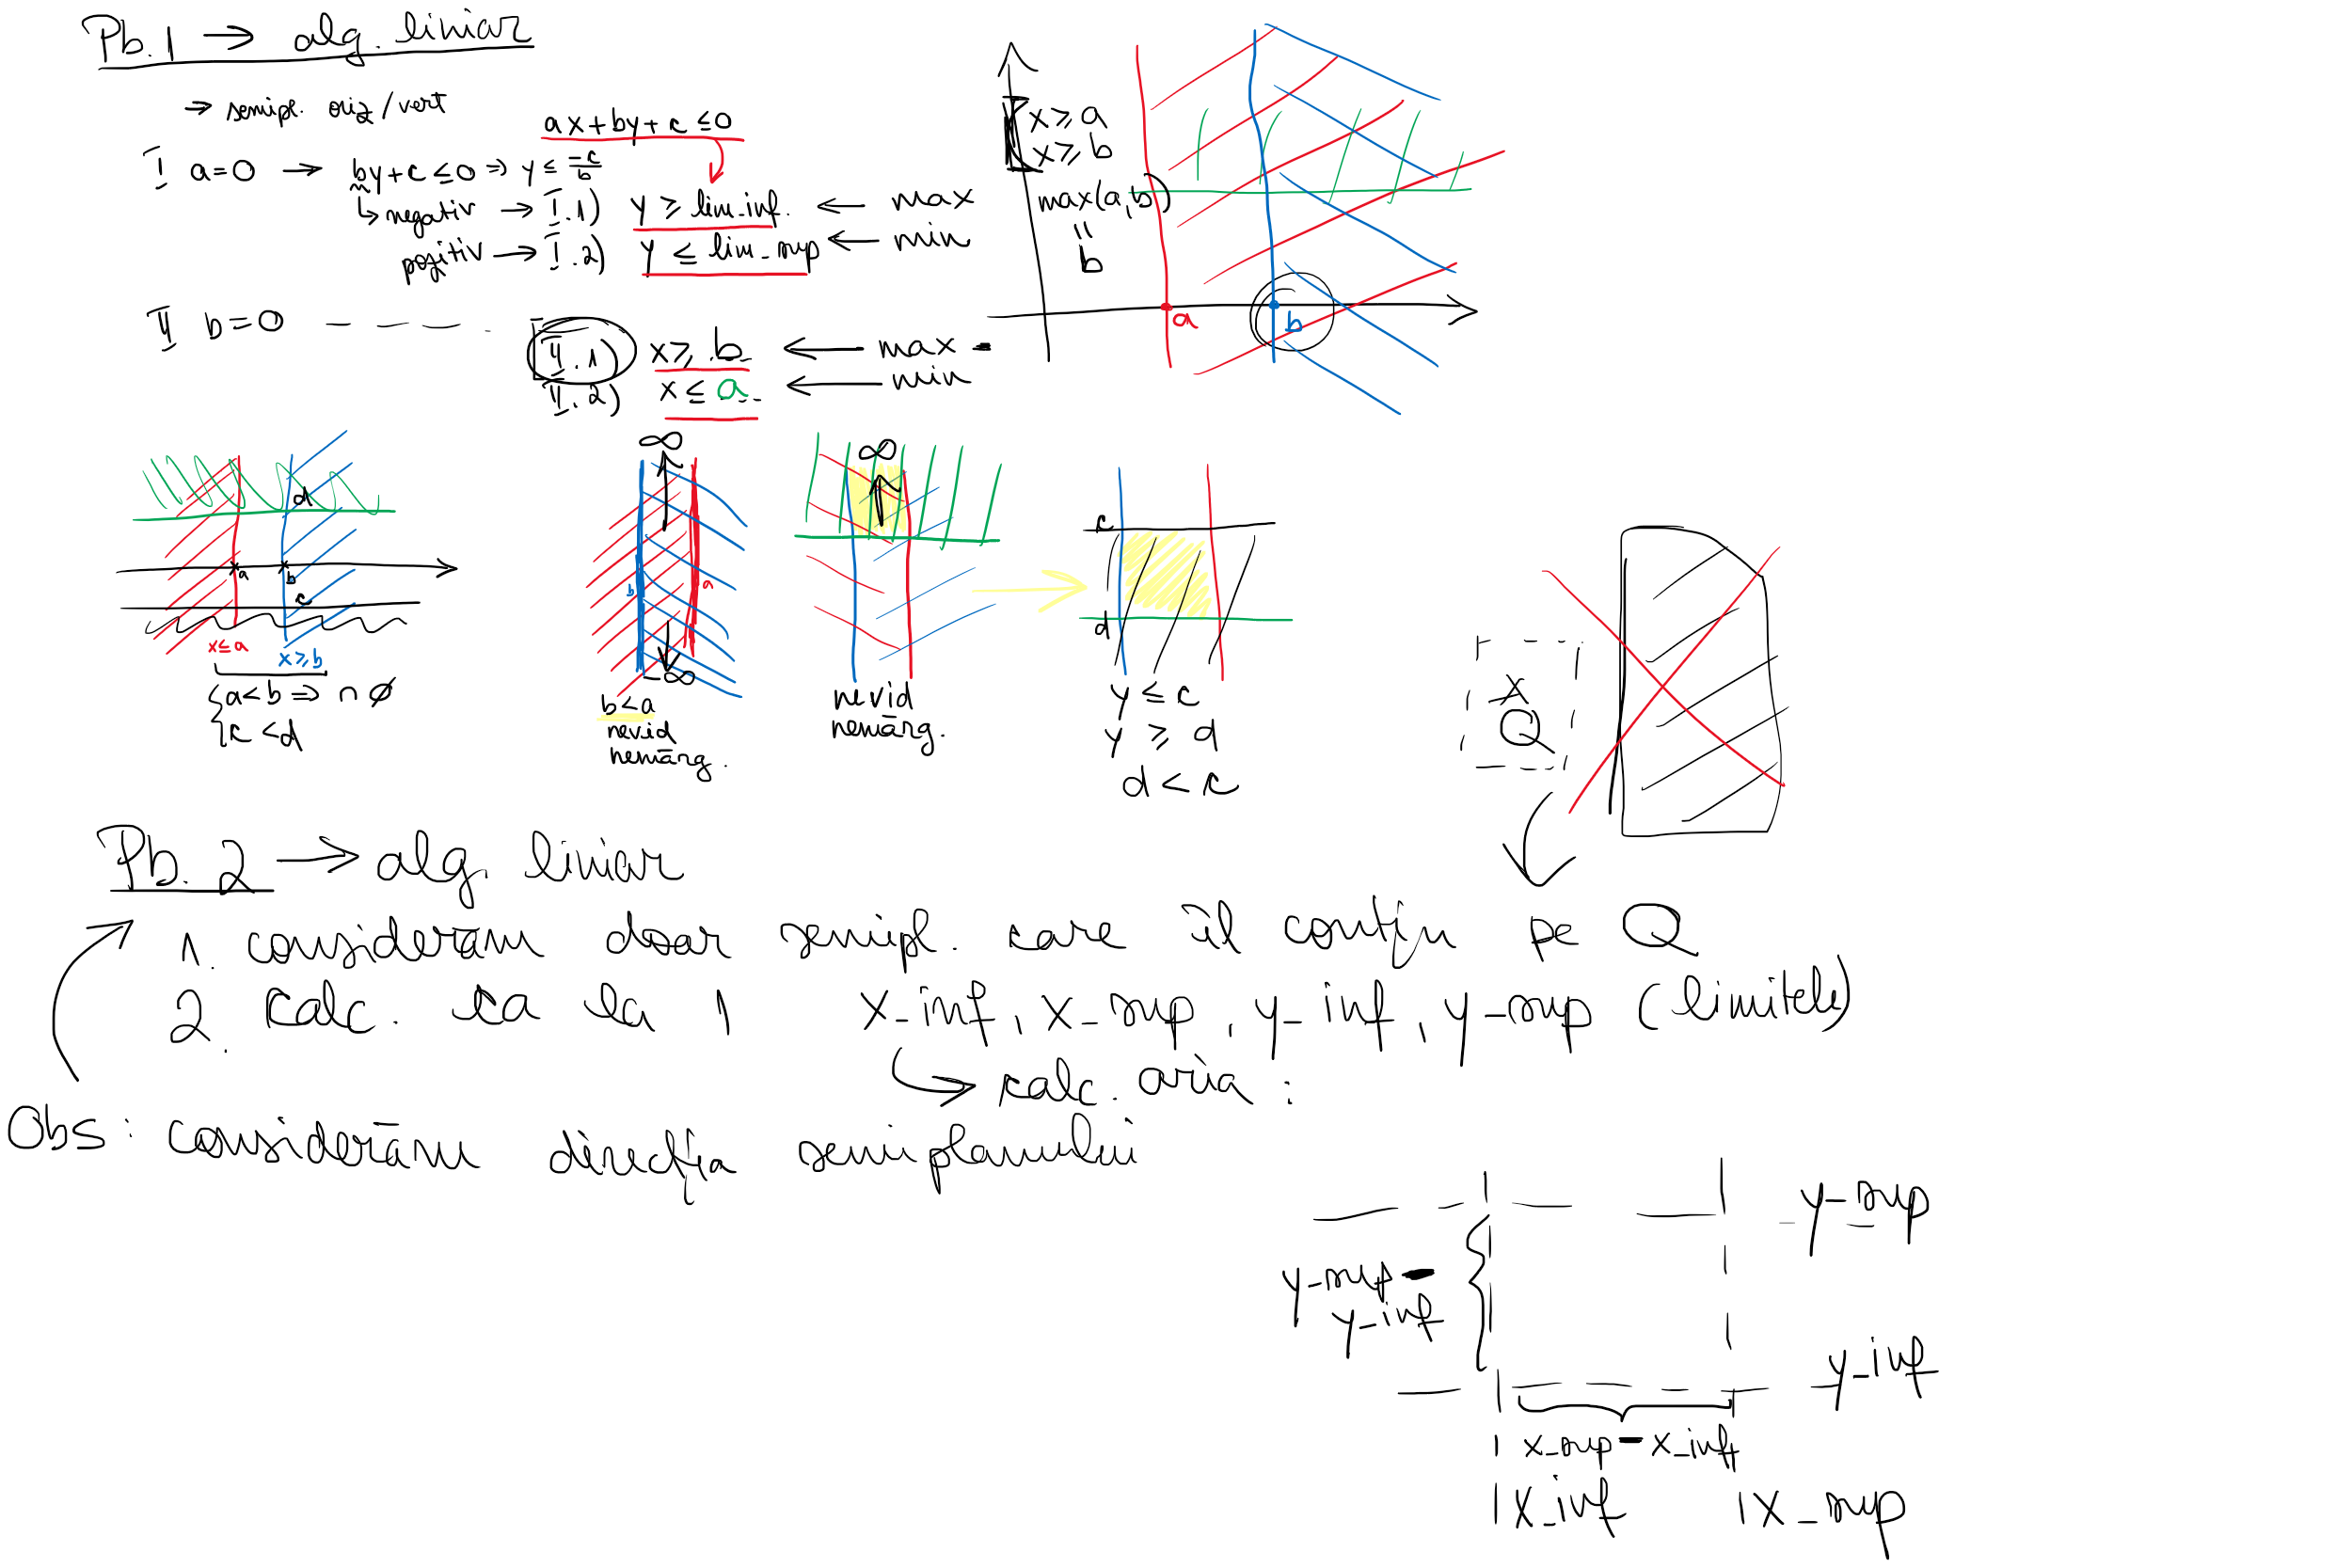 Pb. 1 → alg. liniar
→ semipl. oriz/vert
ax + by + c ≤ 0
I a = 0 → by + c ≤ 0 ⇒ y ≤ -c/b
↳ negativ → I.1) y ≥ lim_inf. ← max
pozitiv → I.2) y ≤ lim_sup ← min
II b = 0 - - - -
II.1) x ≥ b ← max =
II.2) x ≤ a ← min
x ≥ a
x ≥ b
max(a,b)
=
b
a
b
d
a
b
c
x ≤ a
x ≥ b
{ a < b ⇒ ∩ ∅
{ c < d
∞
b
a
-∞
b < a
nevid
nemărg.
∞
nevid
nemărg.
c
d
y ≤ c
y ≥ d
d < c
x
Q
Pb. 2 → alg. liniar
1. considerăm doar semipl. care îl conțin pe Q
2. calc. ca la 1 x_inf, x_sup, y_inf, y_sup (limitele)
↳ calc. aria :
Obs : considerăm direcția semiplanului
y_sup
y_sup -
y_inf
y_inf
x_sup - x_inf
x_inf
x_sup